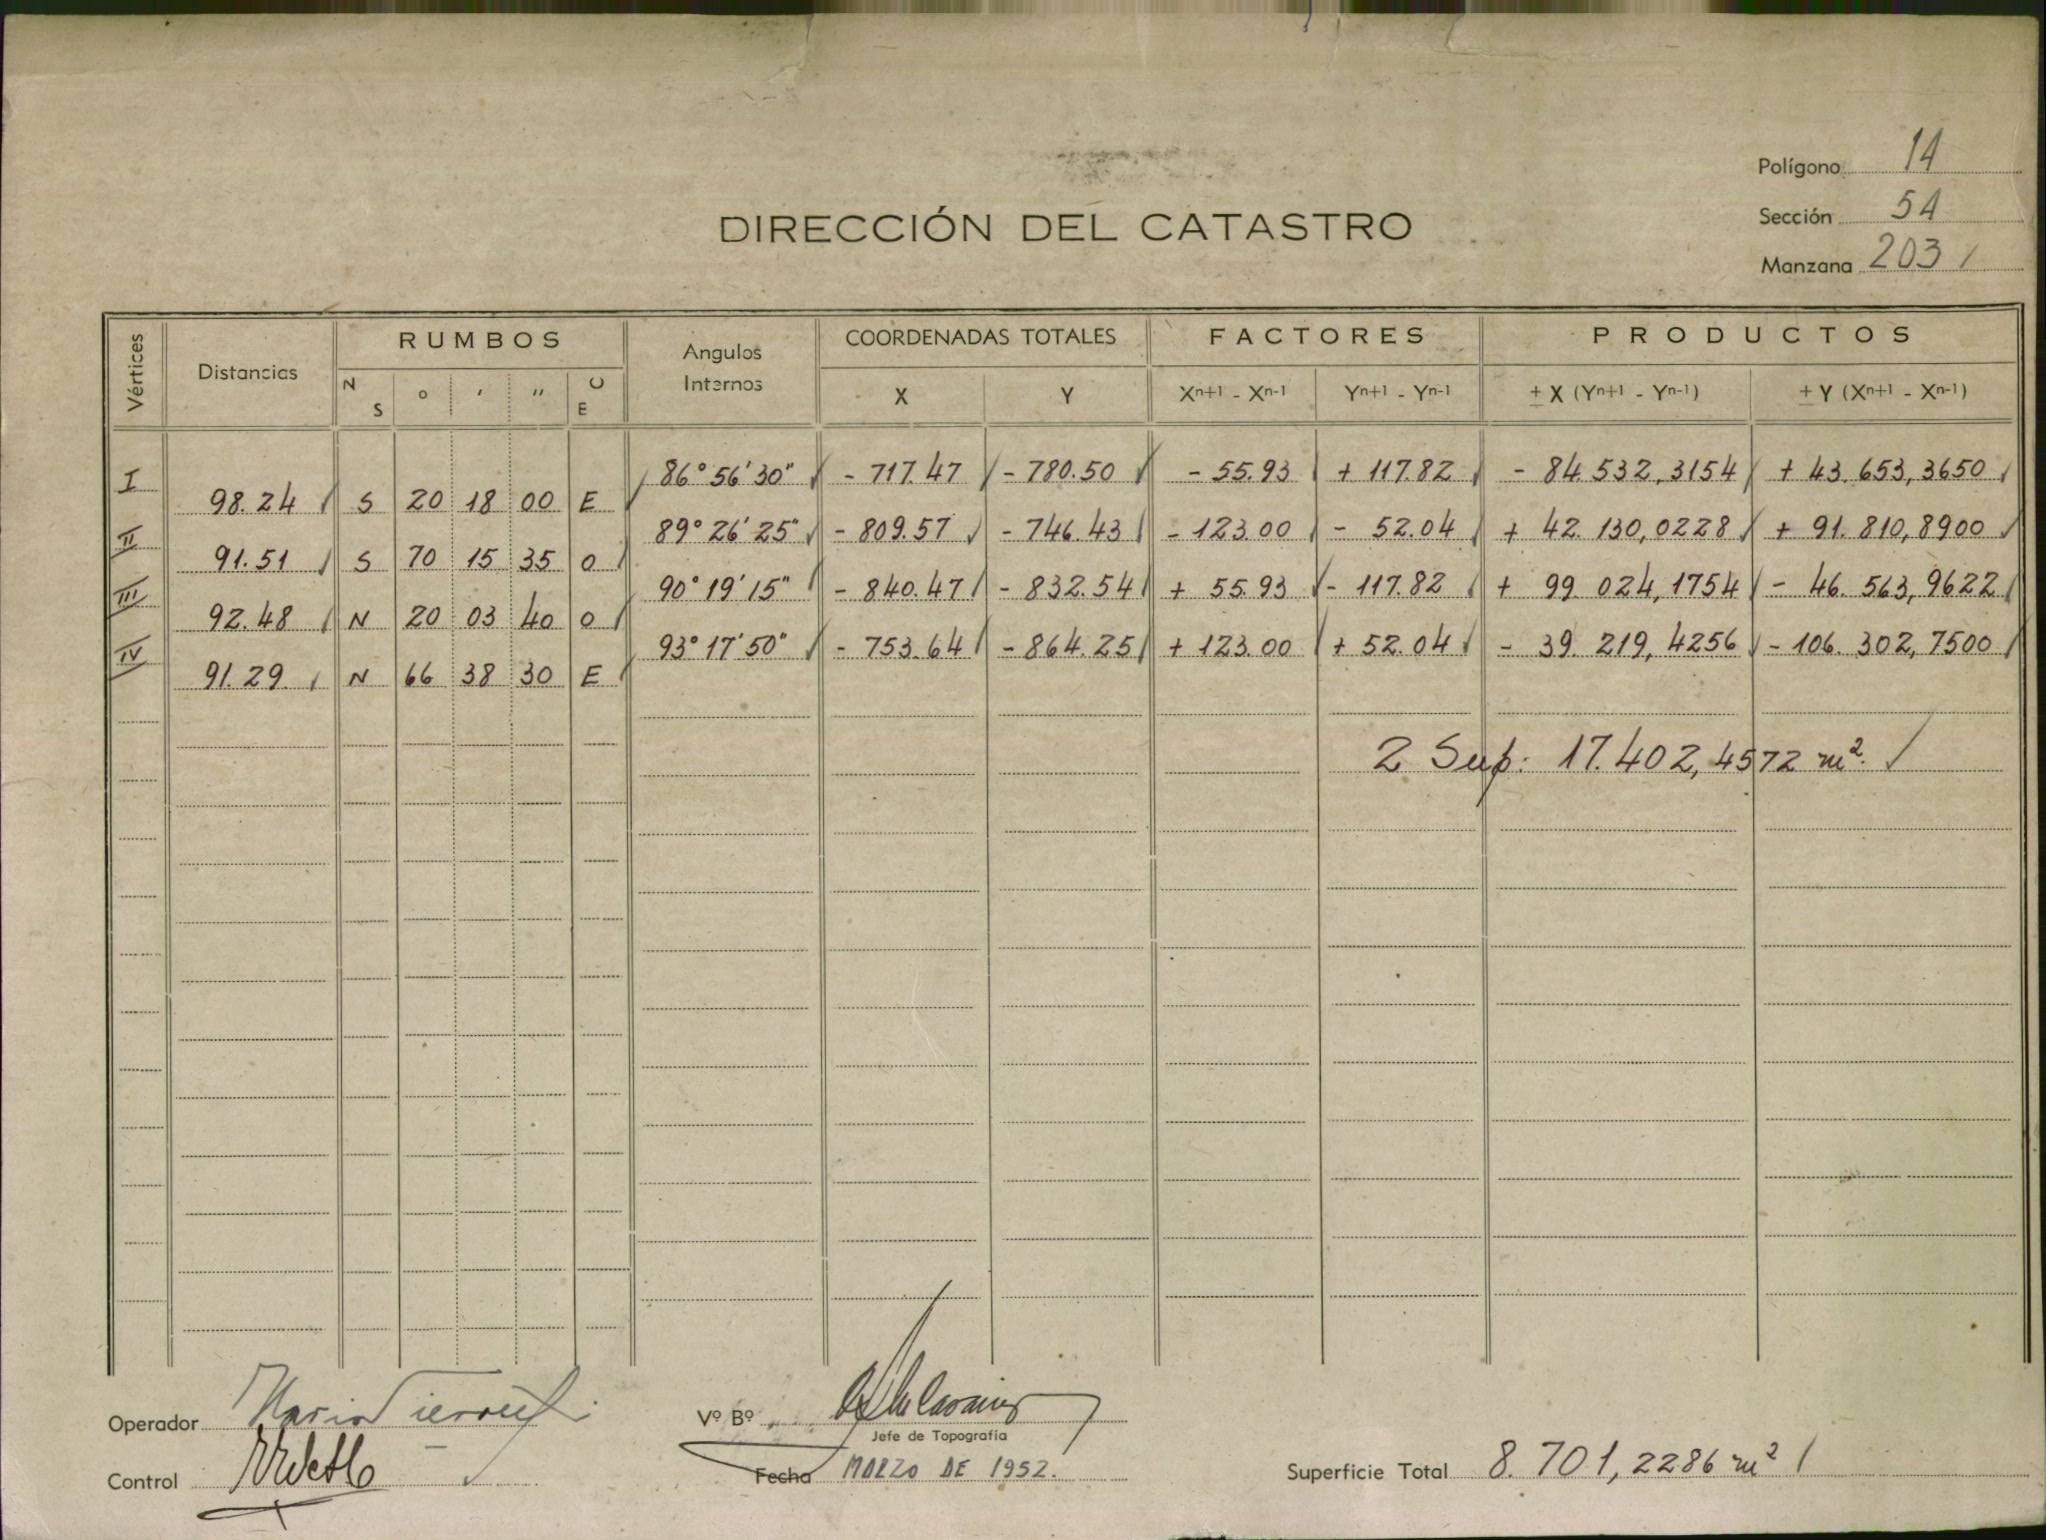 Polígono 14
Sección 54
Manzana 203
DIRECCIÓN DEL CATASTRO
Vértices Distancias RUMBOS Angulos Internos COORDENADAS TOTALES FACTORES PRODUCTOS
N S ° ' " O E X Y Xn+1 - Xn-1 Yn+1 - Yn-1 ± X (Yn+1 - Yn-1) ± Y (Xn+1 - Xn-1)
I 86° 56' 30" - 717.47 - 780.50 - 55.93 + 117.82 - 84.532,3154 + 43.653,3650
98.24 S 20 18 00 E
II 89° 26' 25" - 809.57 - 746.43 - 123.00 - 52.04 + 42.130,0228 + 91.810,8900
91.51 S 70 15 35 O
III 90° 19' 15" - 840.47 - 832.54 + 55.93 - 117.82 + 99 024,1754 - 46.563,9622
92.48 N 20 03 40 O
IV 93° 17' 50" - 753.64 - 864.25 + 123.00 + 52.04 - 39.219,4256 - 106.302,7500
91.29 N 66 38 30 E
2 Sup: 17.402,4572 m².
Operador Mario
Vº Bº
Jefe de Topografía
Control
Fecha MARZO DE 1952.
Superficie Total 8.701,2286 m²